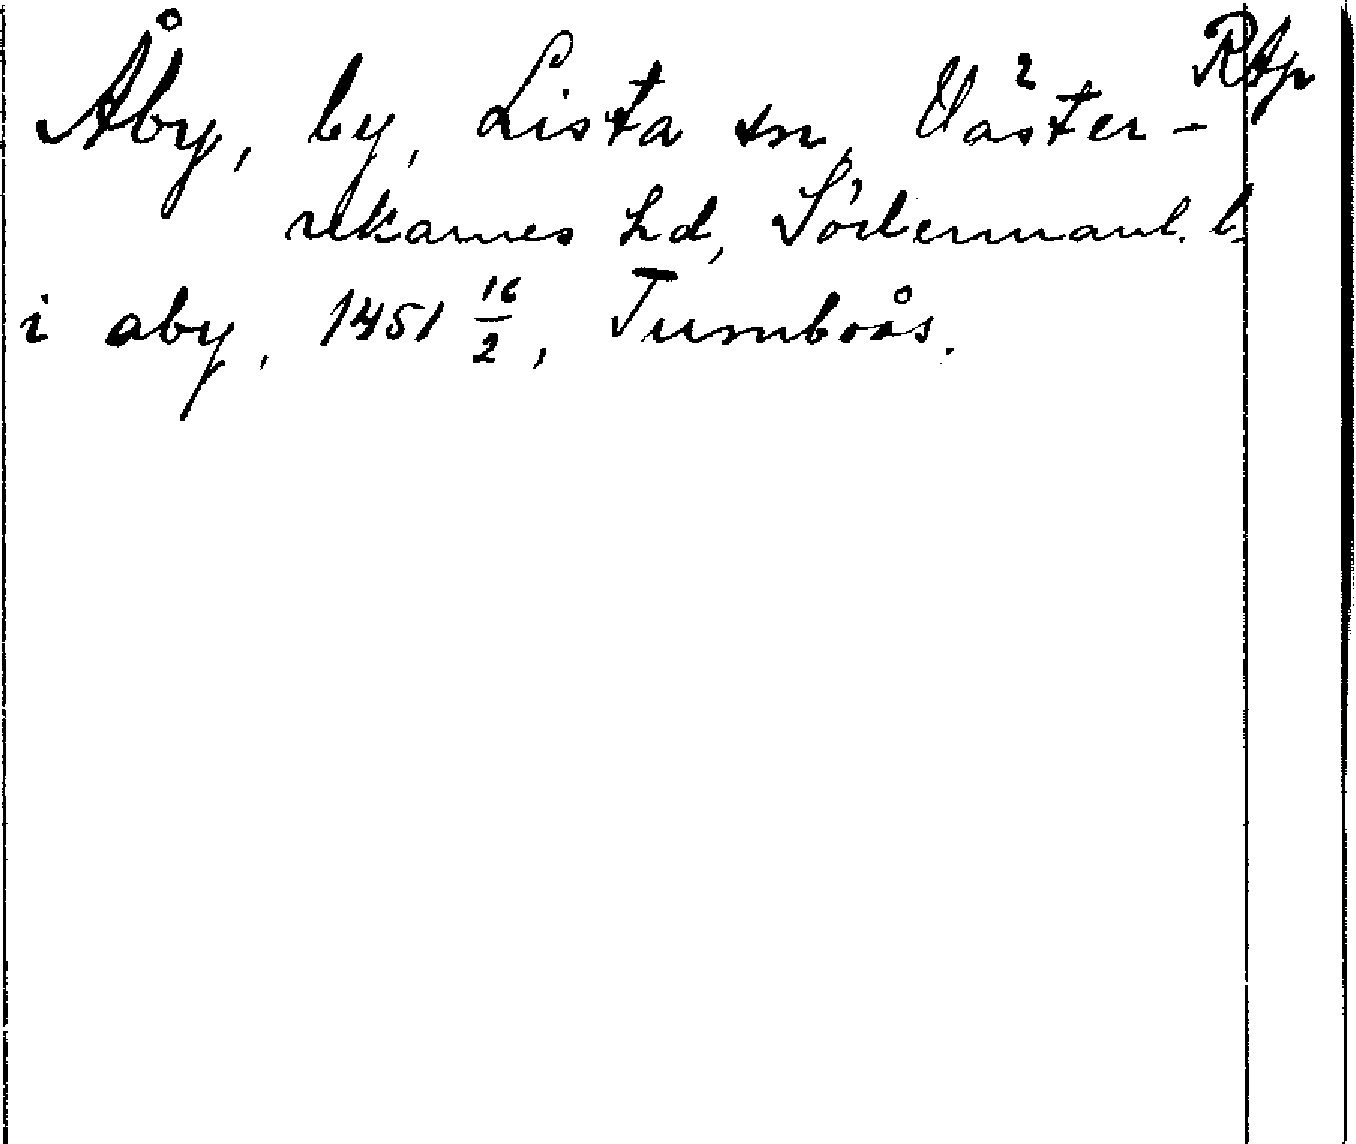 Rtp
Åby, by, Lista sn, Väster-
rekarnes hd, Södermanl. l.
i aby, 1451 16/2, Tumboås.